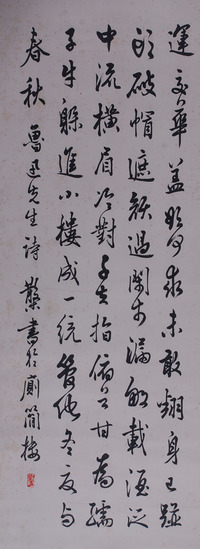 運交華蓋欲何求未敢翻身已踫
頭破帽遮顏過鬧市漏船載酒泛
中流橫眉冷對千夫指俯首甘為孺
子牛躲進小樓成一統管他冬夏與
春秋 魯迅先生詩 書於簡樓